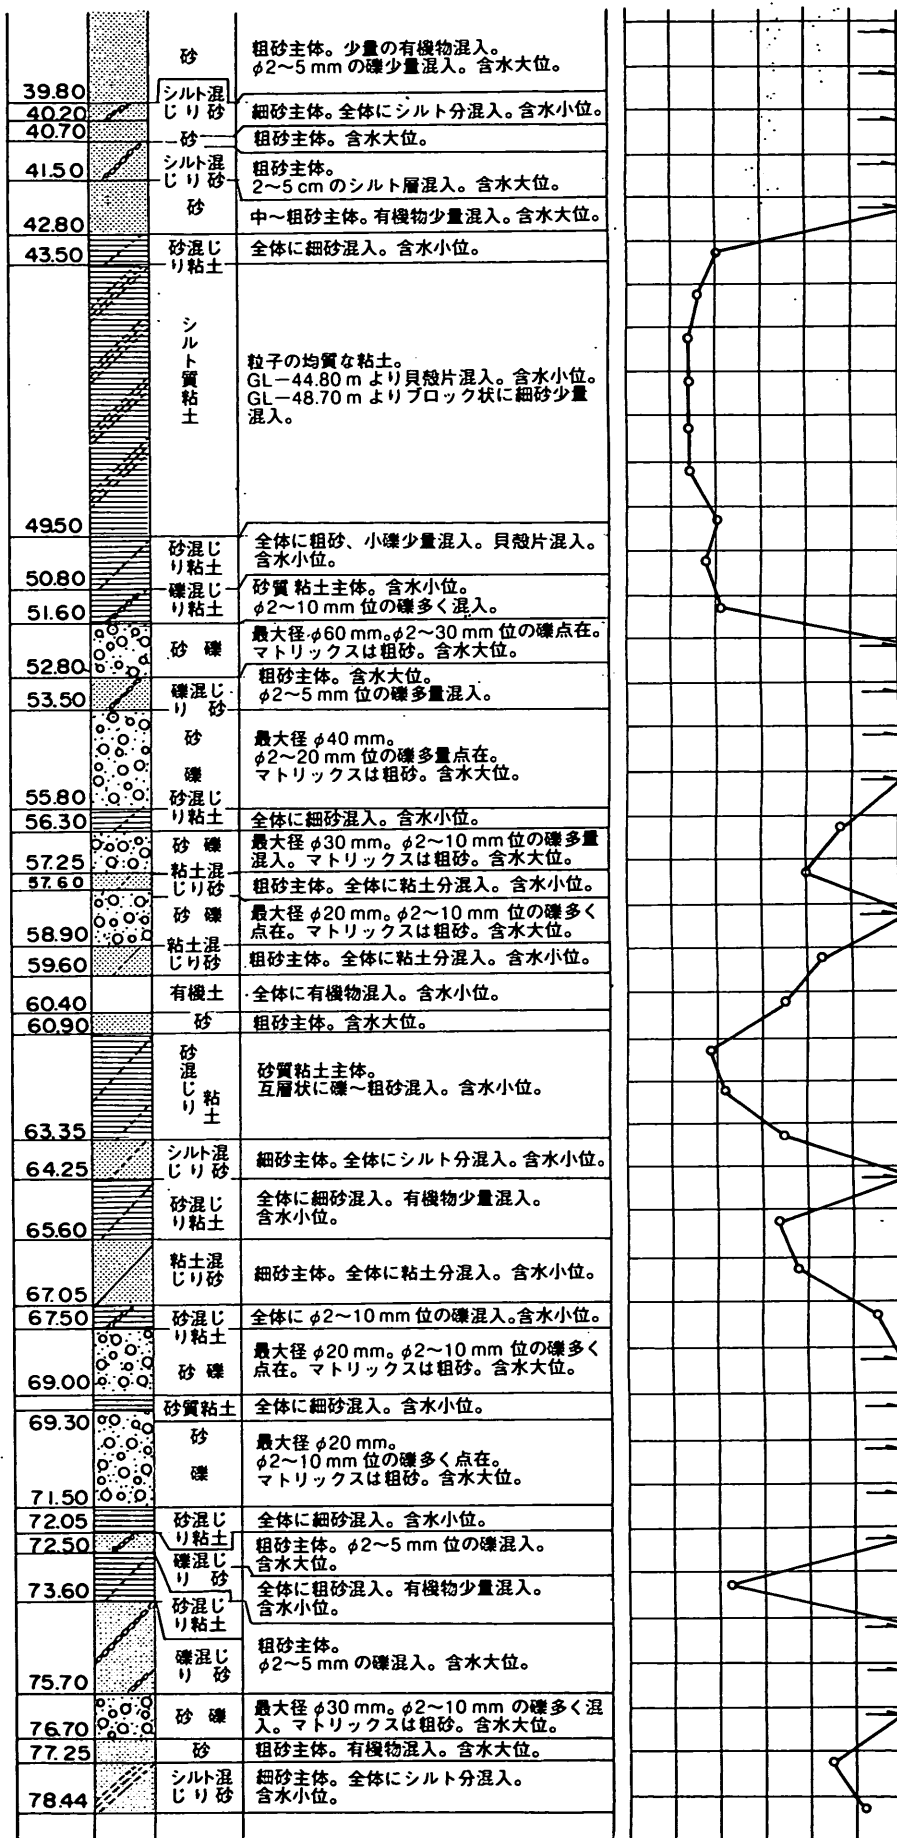 砂
粗砂主体。少量の有機物混入。
φ2〜5 mm の礫少量混入。含水大位。
39.80
シルト混
じり砂
細砂主体。全体にシルト分混入。含水小位。
40.20
砂
粗砂主体。含水大位。
40.70
シルト混
じり砂
粗砂主体。
2〜5 cm のシルト層混入。含水大位。
41.50
砂
中〜粗砂主体。有機物少量混入。含水大位。
42.80
砂混じ
り粘土
全体に細砂混入。含水小位。
43.50
シルト質粘土
粒子の均質な粘土。
GL−44.80 m より貝殻片混入。含水小位。
GL−48.70 m よりブロック状に細砂少量
混入。
49.50
砂混じ
り粘土
全体に粗砂、小礫少量混入。貝殻片混入。
含水小位。
50.80
礫混じ
り粘土
砂質粘土主体。含水小位。
φ2〜10 mm 位の礫多く混入。
51.60
砂 礫
最大径 φ60 mm。φ2〜30 mm 位の礫点在。
マトリックスは粗砂。含水大位。
52.80
礫混じ
り 砂
粗砂主体。含水大位。
φ2〜5 mm 位の礫多量混入。
53.50
砂
礫
最大径 φ40 mm。
φ2〜20 mm 位の礫多量点在。
マトリックスは粗砂。含水大位。
55.80
砂混じ
り粘土
全体に細砂混入。含水小位。
56.30
砂 礫
最大径 φ30 mm。φ2〜10 mm 位の礫多量
混入。マトリックスは粗砂。含水大位。
57.25
粘土混
じり砂
粗砂主体。全体に粘土分混入。含水小位。
57.60
砂 礫
最大径 φ20 mm。φ2〜10 mm 位の礫多く
点在。マトリックスは粗砂。含水大位。
58.90
粘土混
じり砂
粗砂主体。全体に粘土分混入。含水小位。
59.60
有機土
全体に有機物混入。含水小位。
60.40
砂
粗砂主体。含水大位。
60.90
砂混じり粘土
砂質粘土主体。
互層状に礫〜粗砂混入。含水小位。
63.35
シルト混
じり砂
細砂主体。全体にシルト分混入。含水小位。
64.25
砂混じ
り粘土
全体に細砂混入。有機物少量混入。
含水小位。
65.60
粘土混
じり砂
細砂主体。全体に粘土分混入。含水小位。
67.05
砂混じ
り粘土
全体に φ2〜10 mm 位の礫混入。含水小位。
67.50
砂 礫
最大径 φ20 mm。φ2〜10 mm 位の礫多く
点在。マトリックスは粗砂。含水大位。
69.00
砂質粘土
全体に細砂混入。含水小位。
69.30
砂
礫
最大径 φ20 mm。
φ2〜10 mm 位の礫多く点在。
マトリックスは粗砂。含水大位。
71.50
砂混じ
り粘土
全体に細砂混入。含水小位。
72.05
礫混じ
り 砂
粗砂主体。φ2〜5 mm 位の礫混入。
含水大位。
72.50
砂混じ
り粘土
全体に粗砂混入。有機物少量混入。
含水小位。
73.60
礫混じ
り 砂
粗砂主体。
φ2〜5 mm の礫混入。含水大位。
75.70
砂 礫
最大径 φ30 mm。φ2〜10 mm の礫多く混
入。マトリックスは粗砂。含水大位。
76.70
砂
粗砂主体。有機物混入。含水大位。
77.25
シルト混
じり砂
細砂主体。全体にシルト分混入。
含水小位。
78.44